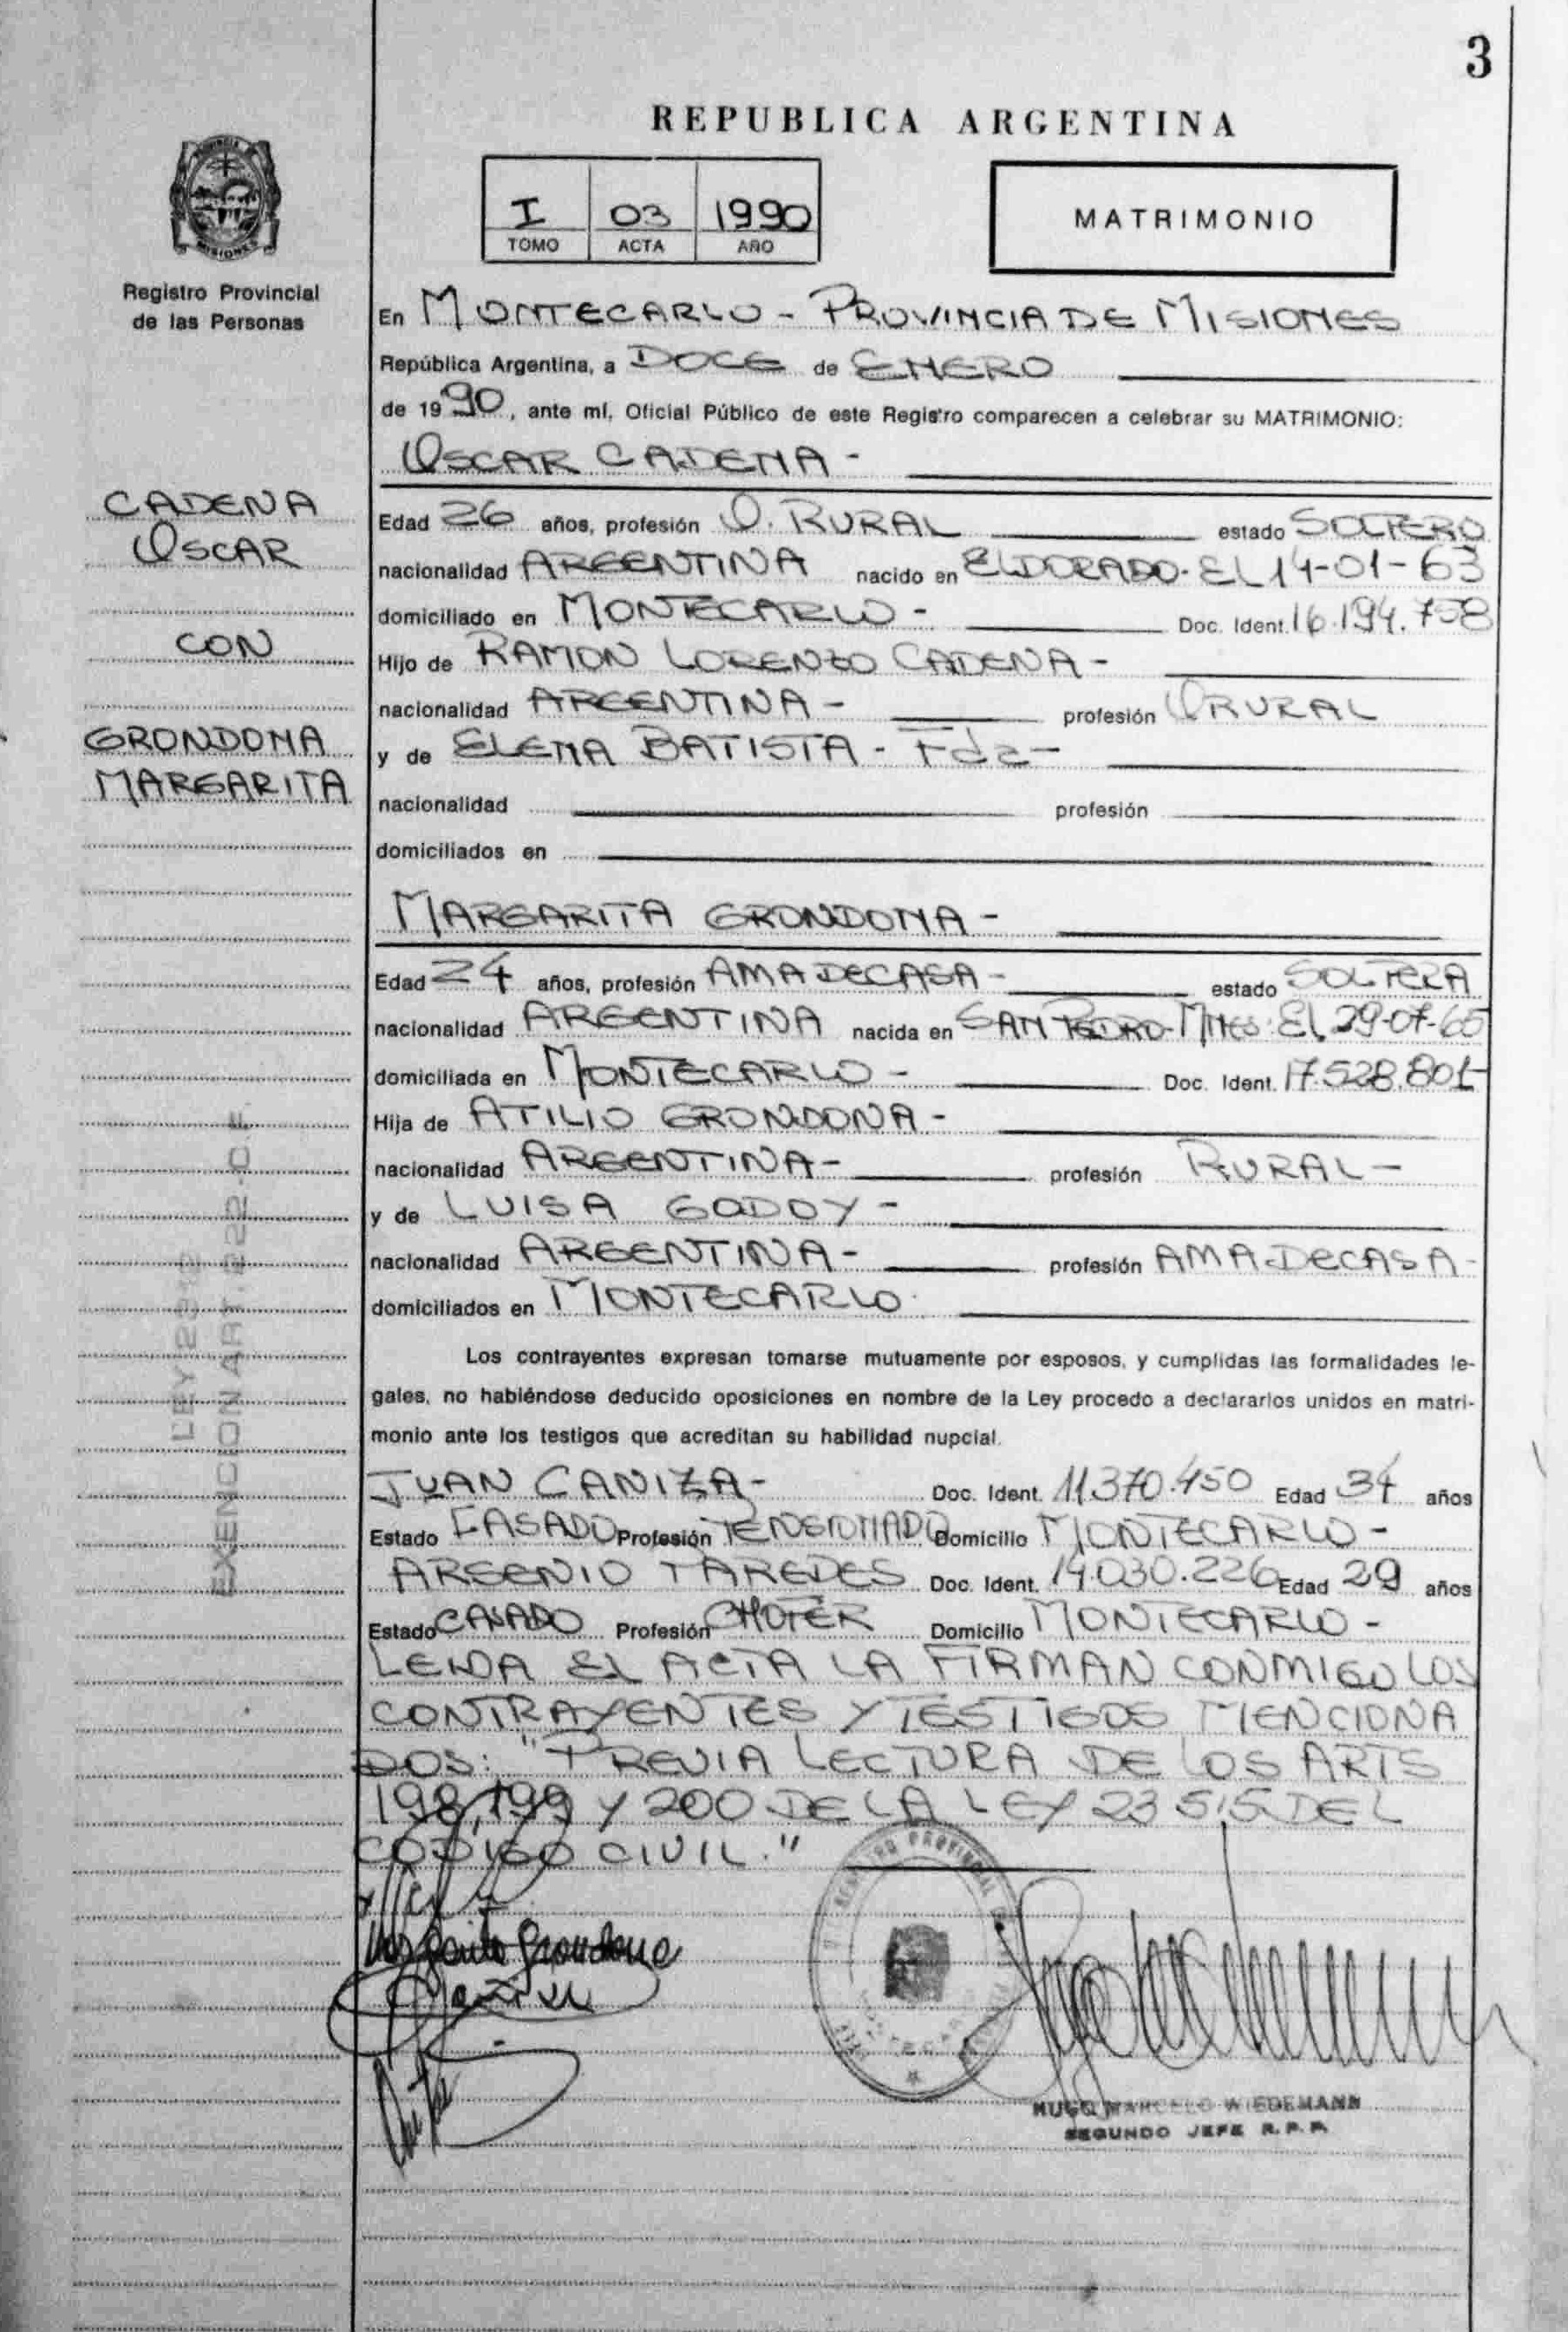 3
REPUBLICA ARGENTINA
I 03 1990
TOMO ACTA AÑO
MATRIMONIO
PROVINCIA
MISIONES
Registro Provincial
de las Personas
En MONTECARLO - PROVINCIA DE MISIONES
República Argentina, a DOCE de ENERO
de 1990, ante mí, Oficial Público de este Registro comparecen a celebrar su MATRIMONIO:
OSCAR CADENA -
CADENA
OSCAR
CON
GRONDONA
MARGARITA
Edad 26 años, profesión O. RURAL estado SOLTERO
nacionalidad ARGENTINA nacido en ELDORADO. EL 14-01-63
domiciliado en MONTECARLO - Doc. Ident. 16.194.758
Hijo de RAMON LORENZO CADENA -
nacionalidad ARGENTINA - profesión O RURAL
y de ELENA BATISTA - Fda -
nacionalidad profesión
domiciliados en
MARGARITA GRONDONA -
Edad 24 años, profesión AMA DE CASA - estado SOLTERA
nacionalidad ARGENTINA nacida en SAN PEDRO - MNES. EL 29-07-65
domiciliada en MONTECARLO - Doc. Ident. 17.528.801-
Hija de ATILIO GRONDONA -
nacionalidad ARGENTINA - profesión RURAL -
y de LUISA GODOY -
nacionalidad ARGENTINA - profesión AMA DE CASA -
domiciliados en MONTECARLO.
LEY
EXENCION ART. 222 C F.
Los contrayentes expresan tomarse mutuamente por esposos, y cumplidas las formalidades le-
gales, no habiéndose deducido oposiciones en nombre de la Ley procedo a declararlos unidos en matri-
monio ante los testigos que acreditan su habilidad nupcial.
JUAN CANIZA - Doc. Ident. 11.370.450 Edad 34 años
Estado CASADO Profesión PENSIONADO Domicilio MONTECARLO -
ARSENIO PAREDES Doc. Ident. 14.030.226 Edad 29 años
Estado CASADO Profesión CHOFER Domicilio MONTECARLO -
LEIDA EL ACTA LA FIRMAN CONMIGO LOS
CONTRAYENTES Y TESTIGOS MENCIONA
DOS: "PREVIA LECTURA DE LOS ARTS
198, 199 Y 200 DE LA LEY 23 515 DEL
CODIGO CIVIL."
Margarita Grondona
HUGO MARCELO WIEDEMANN
SEGUNDO JEFE R.P.P.